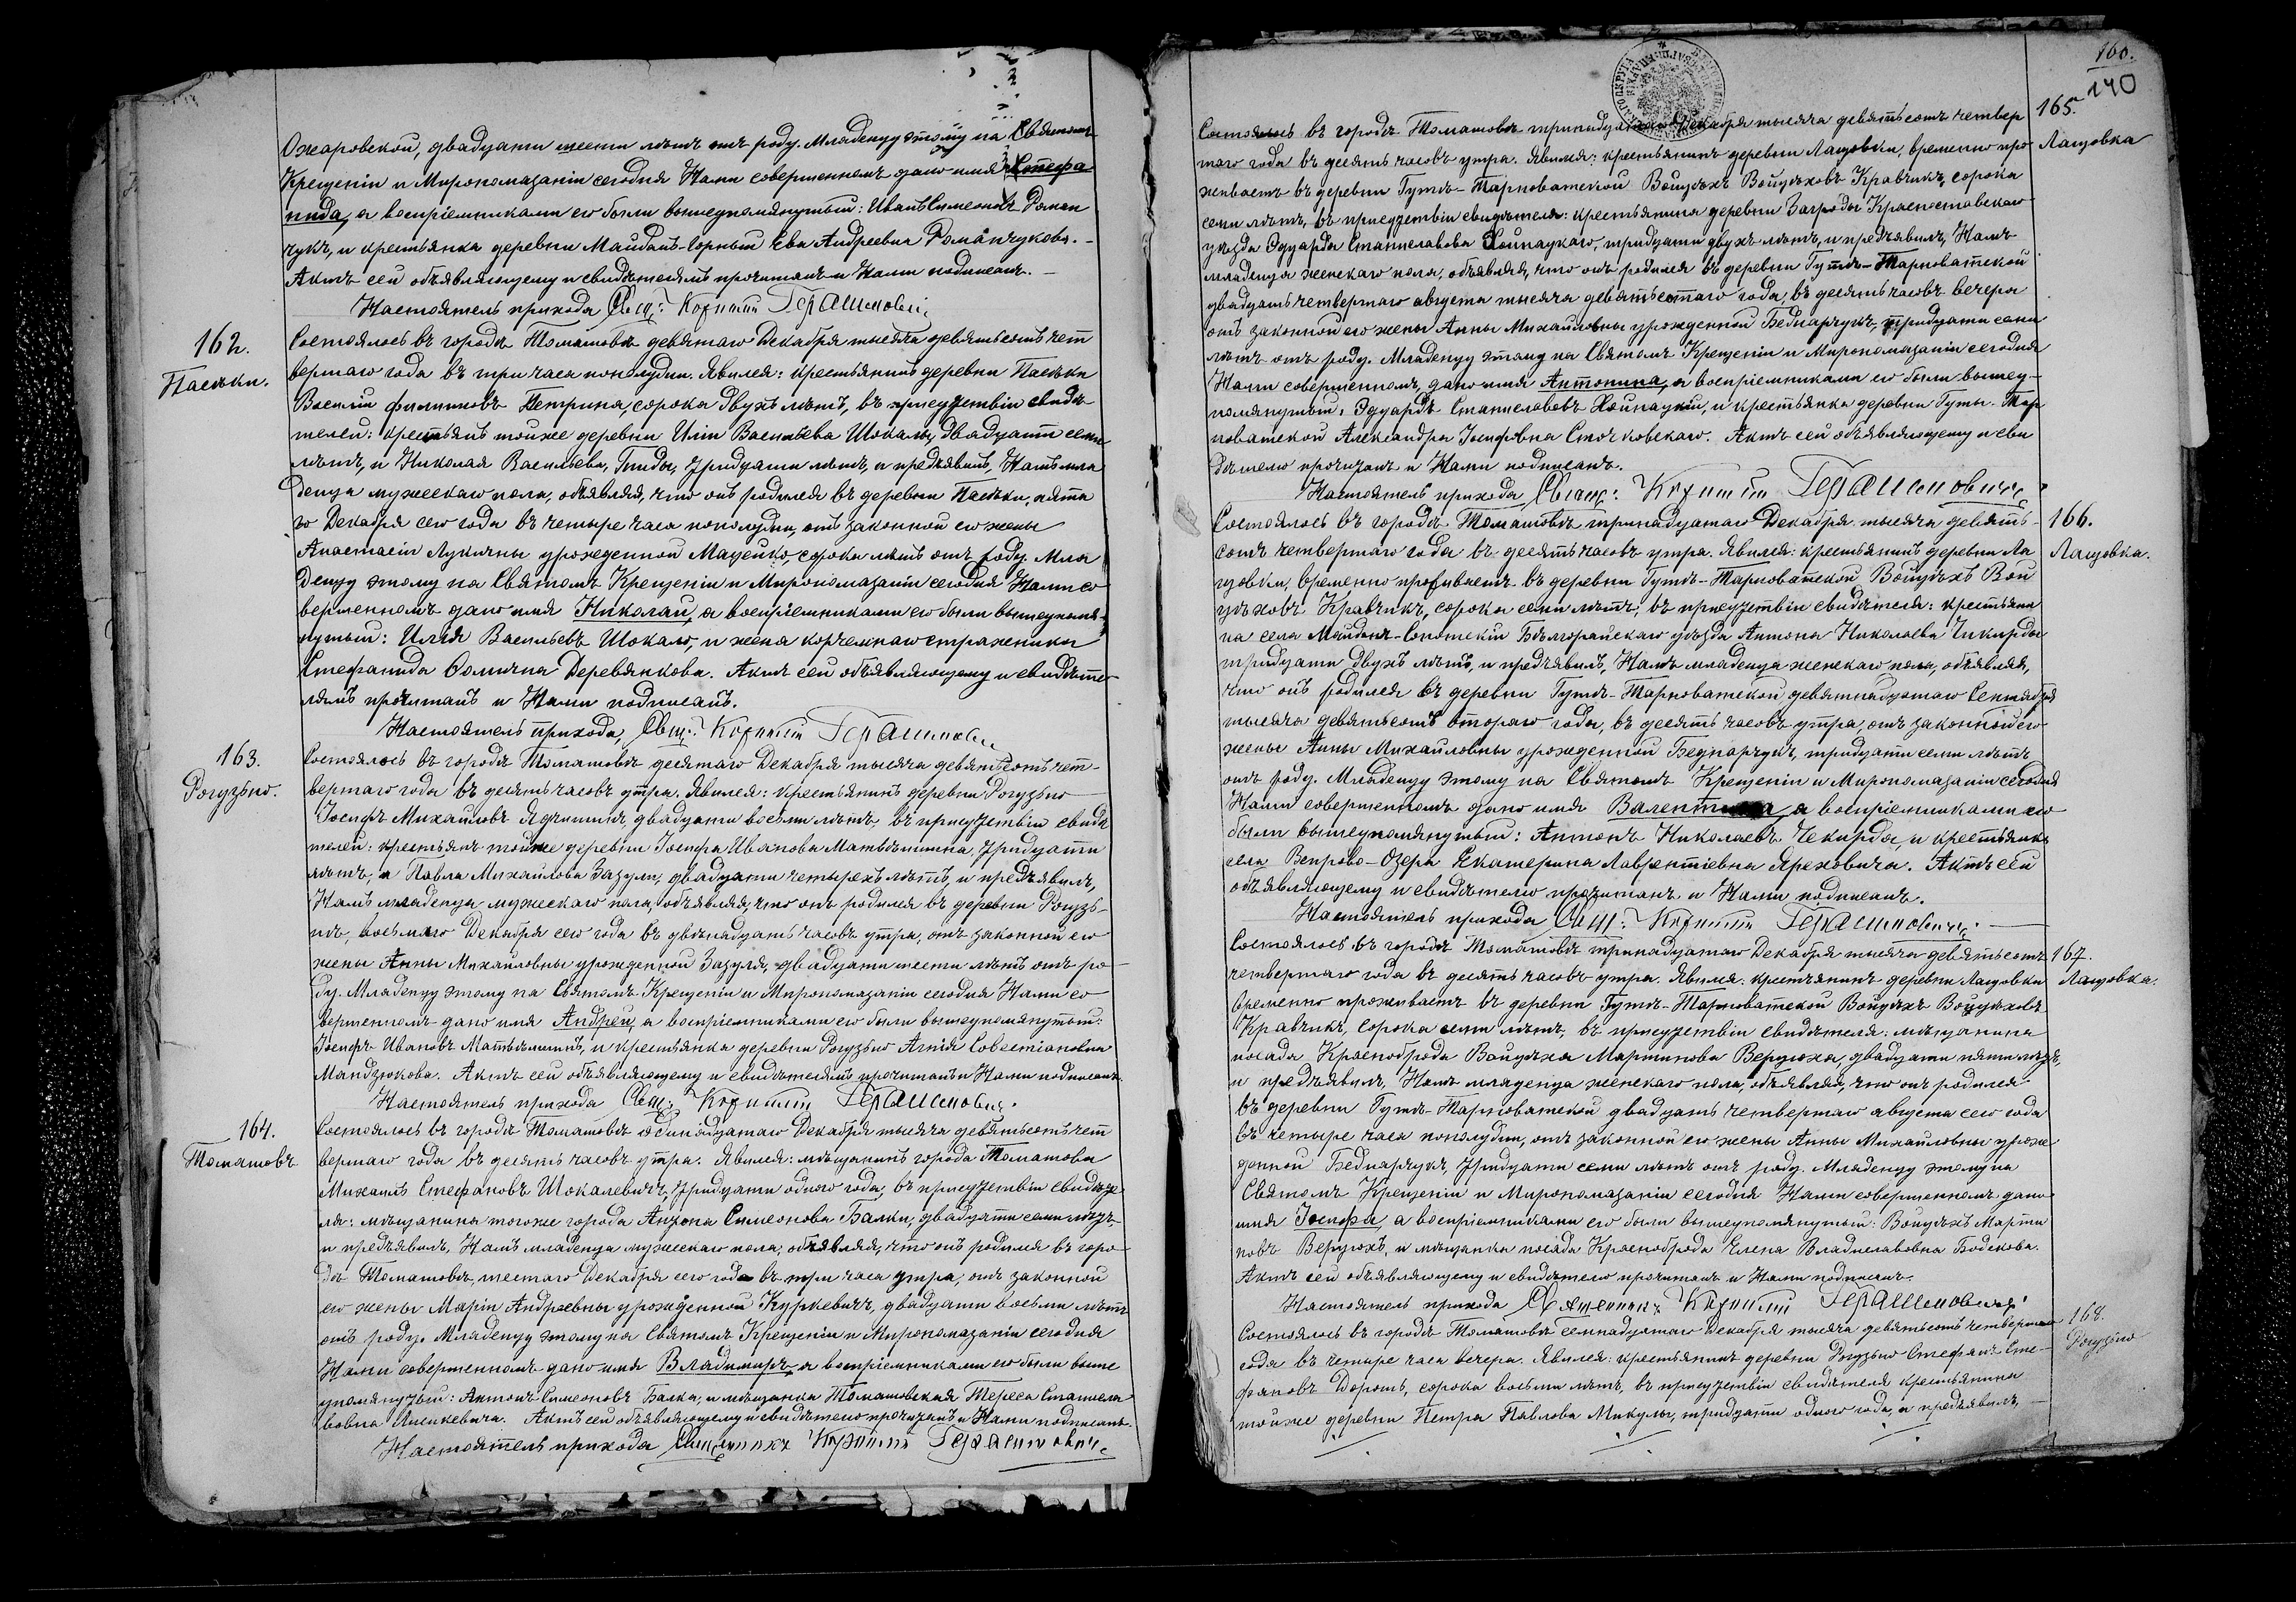 Ожаровской, двадцати шести лѣтъ отъ роду. Младенцу этому на Святомъ
Крещеніи и Миропомазаніи сегодня Нами совершенномъ дано имя Стефа
нида, а воспріемниками его были вышеупомянутый: Иванъ Симеоновъ Роман
чукъ, и крестьянка деревни Майданъ-Горный Ева Андреевна Романчукова.-
Актъ сей объявляющему и свидѣтелямъ прочитанъ и Нами подписанъ.-
Настоятель прихода Свящ: Корнилій Герасимович
162.
Пасѣки.
Состоялось въ городѣ Томашовѣ девятаго Декабря тысяча девятьсотъ чет
вертаго года въ три часа пополудни. Явился: крестьянинъ деревни Пасѣки
Василій Филиповъ Петрина, сорока двухъ лѣтъ, въ присутствіи свидѣ
телей: крестьянъ тойже деревни Иліи Васильева Шокало, двадцати семи
лѣтъ, и Николая Васильева, Гнида, тридцати лѣтъ, и предъявилъ, Намъ мла
денца мужескаго пола, объявляя, что онъ родился въ деревни Пасѣки, пята
го Декабря сего года въ четыре часа пополудни, отъ законной его жены
Анастасіи Лукичны урожденной Мацейко, сорока лѣтъ отъ роду. Мла
денцу этому на Святомъ Крещеніи и Миропомазаніи сегодня Нами со
вершенномъ дано имя Николай, а воспріемниками его были вышеупомя-
нутый: Илія Васильевъ Шокало, и жена корчемнаго стражника
Стефанида Фомична Деревянкова. Актъ сей объявляющему и свидѣте-
лямъ прочитанъ и Нами подписанъ.
Настоятель прихода, Свящ: Корнилій Герасимович
163.
Рогузьно.
Состоялось въ городѣ Томашовѣ десятаго Декабря тысяча девятьсотъ чет-
вертаго года въ десять часовъ утра. Явился: крестьянинъ деревни Рогузьно
Іосифъ Михаиловъ Ядчишинъ, двадцати восьми лѣтъ, въ присутствіи свидѣ
телей: крестьянъ тойже деревни Іосифа Иванова Матвѣишина, тридцати
лѣтъ, и Павла Михайлова Зазули, двадцати четырехъ лѣтъ, и предъявилъ,
Намъ младенца мужескаго пола, объявляя, что онъ родился въ деревни Рогузь-
нѣ, восьмаго Декабря сего года въ двѣнадцать часовъ утра, отъ законной его
жены Анны Михаиловны урожденной Зазуля, двадцати шести лѣтъ отъ ро-
ду. Младенцу этому на Святомъ Крещеніи и Миропомазаніи сегодня Нами со
вершенномъ дано имя Андрей, а воспріемниками его были вышеупомянутый:
Іосифъ Ивановъ Матвѣишинъ, и крестьянка деревни Рогузьно Агнія Совестіановна
Мандзюкова. Актъ сей объявляющему и свидѣтелямъ прочитанъ и Нами подписанъ.
Настоятель прихода Свящ: Корнилій Герасимович.
164.
Томашовъ
Состоялось въ городѣ Томашовѣ одинадцатаго Декабря тысяча девятьсотъ чет
вертаго года въ десять часовъ утра. Явился: мѣщанинъ города Томашова
Михаилъ Стефановъ Шокалевичъ, тридцати одного года, въ присутствіи свидѣте
ля: мѣщанина тогоже города Антона Симеонова Балки, двадцати семи лѣтъ,
и предъявилъ, Намъ младенца мужескаго пола, объявляя, что онъ родился въ горо
дѣ Томашовѣ, шестаго Декабря сего года въ три часа утра, отъ законной
его жены Маріи Андреевны урожденной Куркевичъ, двадцати восьми лѣтъ
отъ роду. Младенцу этому на Святомъ Крещеніи и Миропомазаніи сегодня
Нами совершенномъ дано имя Владимиръ, а воспріемниками его были выше
упомянутый: Антонъ Симеоновъ Балка, и мѣщанка Томашовская Тереса Станисла
вовна. Актъ сей объявляющему и свидѣтелю прочитанъ и Нами подписанъ.
Настоятель прихода Священникъ Корнилій Герасимович.
160.
140
165.
Лащовка
Состоялось въ городѣ Томашовѣ тринадцатаго Декабря тысяча девятьсотъ четвер
таго года въ десять часовъ утра. Явился: крестьянинъ деревни Лащовки, временно про
живаетъ въ деревни Гутѣ-Тарноватской Войцѣхъ Войцѣховъ Кравчикъ, сорока
семи лѣтъ, въ присутствіи свидѣтеля: крестьянина деревни Загроды Красноставскаго
уѣзда Эдуарда Станиславова Хойнацкаго, тридцати двухъ лѣтъ, и предъявилъ, Намъ
младенца женскаго пола, объявляя, что онъ родился въ деревни Гутѣ-Тарноватской
двадцать четвертаго августа тысяча девятьсотаго года, въ десять часовъ вечера
отъ законной его жены Анны Михаиловны урожденной Беднарчукъ, тридцати семи
лѣтъ отъ роду. Младенцу этому на Святомъ Крещеніи и Миропомазаніи сегодня
Нами совершенномъ, дано имя Антонина, а воспріемниками его были вышеу-
помянутый, Эдуардъ Станиславовъ Хойнацкій, и крестьянка деревни Гуты-Тар
новатской Александра Іосифовна Сточковскаго. Актъ сей объявляющему и сви
дѣтелю прочитанъ и Нами подписанъ.
Настоятель прихода Свящ: Корнилій Герасимович
166.
Лащовка.
Состоялось въ городѣ Томашовѣ тринадцатаго Декабря тысяча девять-
сотъ четвертаго года въ десять часовъ утра. Явился: крестьянинъ деревни Ла
щовки, временно проживаетъ въ деревни Гутѣ-Тарноватской Войцѣхъ Вой
цѣховъ Кравчикъ, сорока семи лѣтъ, въ присутствіи свидѣтеля: крестьяни
на села Майданъ-Сопотскій Бѣлгорайскаго уѣзда Антона Николаева Чикирды
тридцати двухъ лѣтъ, и предъявилъ, Намъ младенца женскаго пола, объявляя,
что онъ родился въ деревни Гутѣ-Тарноватской девятнадцатаго Сентября
тысяча девятьсотъ втораго года, въ десять часовъ утра, отъ законной его
жены Анны Михаиловны урожденной Беднарчукъ, тридцати семи лѣтъ
отъ роду. Младенцу этому на Святомъ Крещеніи и Миропомазаніи сегодня
Нами совершенномъ дано имя Валентина, а воспріемниками его
были вышеупомянутый: Антонъ Николаевъ Чекирда, и крестьянка
села Вепрово-Озера Екатерина Лаврентіевна Яреховича. Актъ сей
объявляющему и свидѣтелю прочитанъ и Нами подписанъ.
Настоятель прихода Свящ: Корнилій Герасимович.
167.
Лащовка.
Состоялось въ городѣ Томашовѣ тринадцатаго Декабря тысяча девятьсотъ
четвертаго года въ десять часовъ утра. Явился: крестьянинъ деревни Лащовки
временно проживаетъ въ деревни Гутѣ-Тарноватской Войцѣхъ Войцѣховъ
Кравчикъ, сорока семи лѣтъ, въ присутствіи свидѣтеля: мѣщанина
посада Красноброда Войцѣха Мартинова Верцюха, двадцати пяти лѣтъ,
и предъявилъ, Намъ младенца женскаго пола, объявляя, что онъ родился
въ деревни Гутѣ-Тарноватской двадцать четвертаго августа сего года
въ четыре часа пополудни, отъ законной его жены Анны Михаиловны урож
денной Беднарчукъ, тридцати семи лѣтъ отъ роду. Младенцу этому на
Святомъ Крещеніи и Миропомазаніи сегодня Нами совершенномъ дано
имя Іосифа, а воспріемниками его были вышеупомянутый: Войцѣхъ Марти
новъ Верцюхъ, и мѣщанка посада Красноброда Елена Владиславовна Бодекова.
Актъ сей объявляющему и свидѣтелю прочитанъ и Нами подписанъ.
Настоятель прихода Священникъ Корнилій Герасимович
168.
Рогузьно
Состоялось въ городѣ Томашовѣ семнадцатаго Декабря тысяча девятьсотъ четвертаго
года въ четыре часа вечера. Явился: крестьянинъ деревни Рогузьно Стефанъ Сте-
фановъ Дорошъ, сорока восьми лѣтъ, въ присутствіи свидѣтеля крестьянина
тойже деревни Петра Павлова Микулы, тридцати одного года, и предъявилъ,